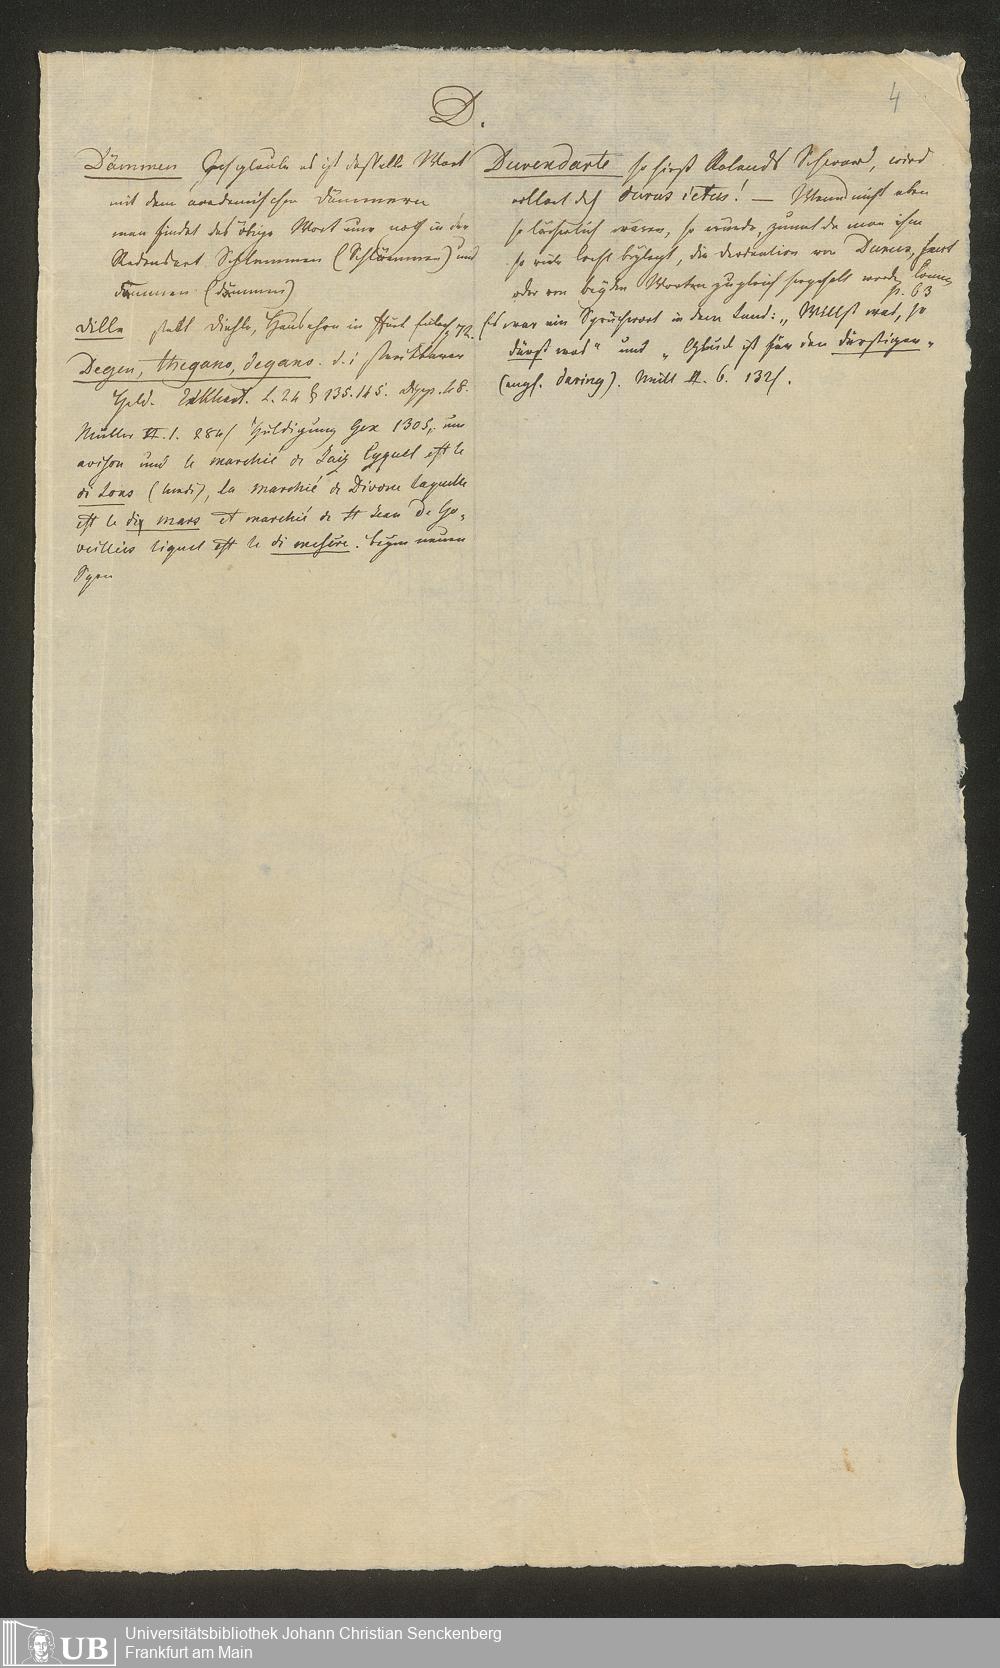 D.
4
Dämmen Ich glaube es ist dasselbe Wort
mit dem academischen dämmern
man findet das obige Wort nur noch in der
Redensart Schlemmen (Schlämmen) und
demmen (dämmen)
Dille statt Diehle, Hausehrn in 72.
Degen, thegano, degano. d. i starkbarer
Held. Ekkhart. L. 24 § 135. 145.
Müller VI. 1. 284 Huldigung Gex 1305,
und le marchié de Saiz lyquel est le
di Lons (lundi), la marchié de Divone laquelle
est le diq mars et marchié de St Jean de Go,
velliers liquel est le di mesure.
Durendarte so hieß Rolands Schward, wird
durus ictus! — Wenn nicht eben
so lächerlich wären, so würde, zumal da man ihm
so viele beylegt, die derivation von Durus, hart
oder von beyden Worten zugleich hergeholt werden
p. 63
Es war ein Sprüchwort in dem Land: „Willst was, so
dürst was" und „Glück ist für den dürstigen"
(engl. daring). Müll II. 6. 132
UB
Universitätsbibliothek Johann Christian Senckenberg
Frankfurt am Main